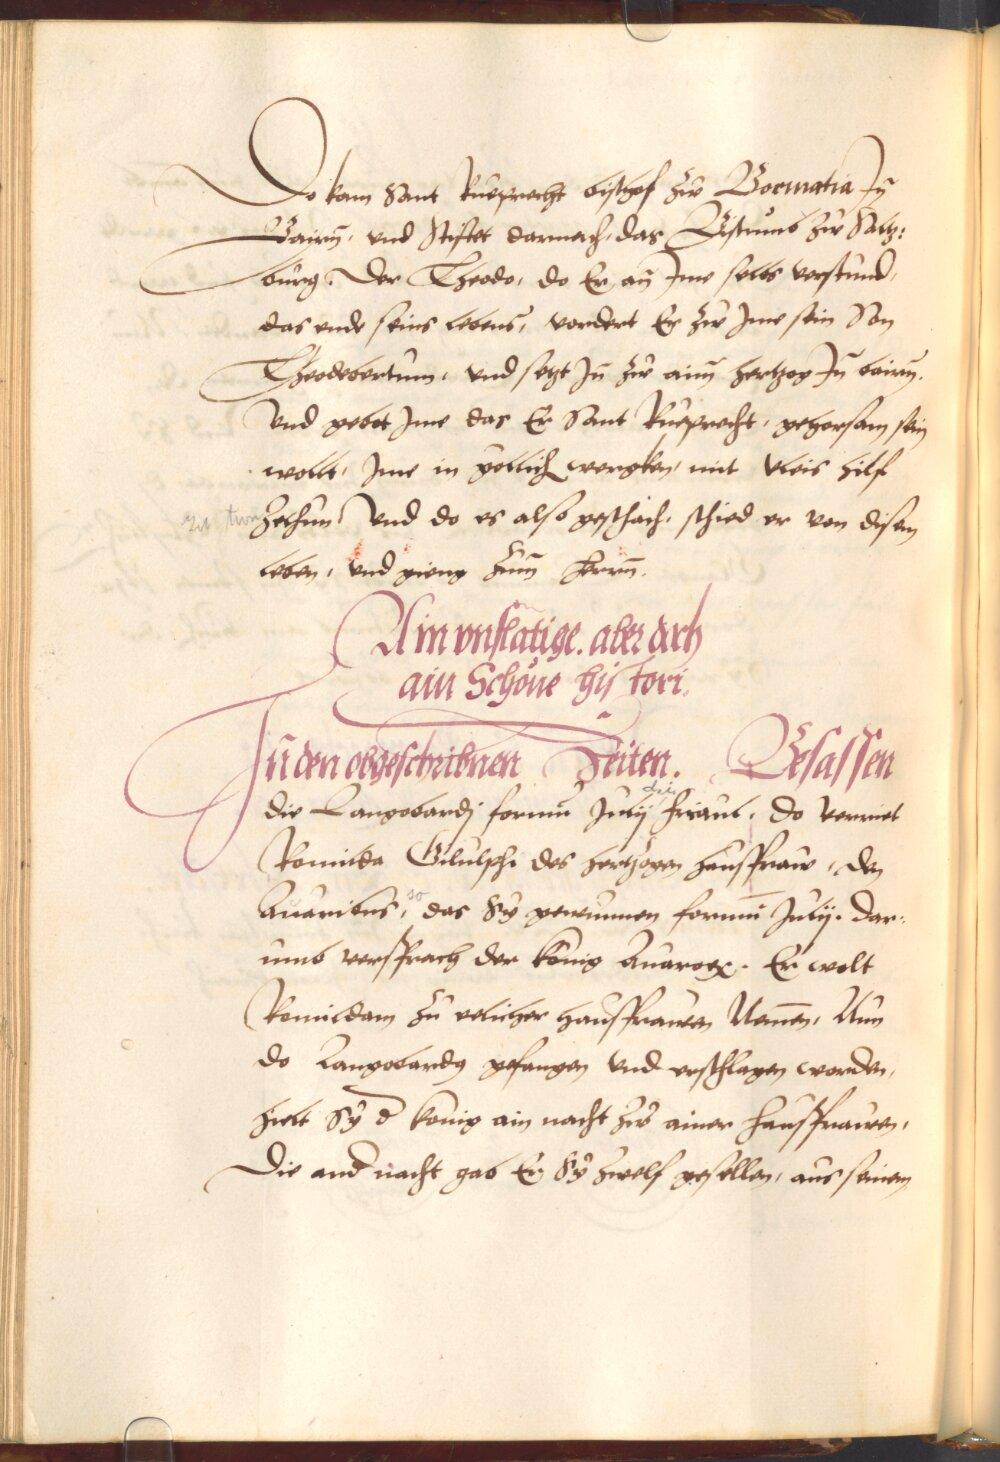 Do kam Sant Rueprecht bischof zŭr Wormatia Jn̄
Bairn̄, und Stifftet darnach, das Bistumb zŭ Saltz:
bŭrg. Der Theodo, do Er an̄ Jme selbs verstŭnd,
das ende seins lebens, vordert Er zŭ Jme sein Son
Theodebertum, und setzt Jn̄ zŭ aim̄ hertzog Jn̄ bairn̄.
Und gebot Jme das Er Sant Rueprecht, gehorsam sein
wollt, Jme in götlich wergken, mit vleis hilf
zethun. Und do es also geschach, schied er von disem
leben, und gieng zŭm̄ herrn̄.
Ain unflatige. aber doch
ain Schöne histori.
Jn̄ den obgeschribnen Zeiten. Besassen
die Langobardj forum̄ Julij friaul. do verriet
Romilda Gilulphi des hertzogen hausfraw, den
Avaribus, das Sy gewunnen forum̄ Julij. dar:
umb versprach der König Avarorum. Er wolt
Romildam zŭ eelicher hausfrauen Nemen, Nun
do Langobardj gefangen und erschlagen worden,
hielt Sy d König ain nacht zŭ ainer hausfrauen,
Die and nacht gab Er Sy zwelf gesellen, aus seinem